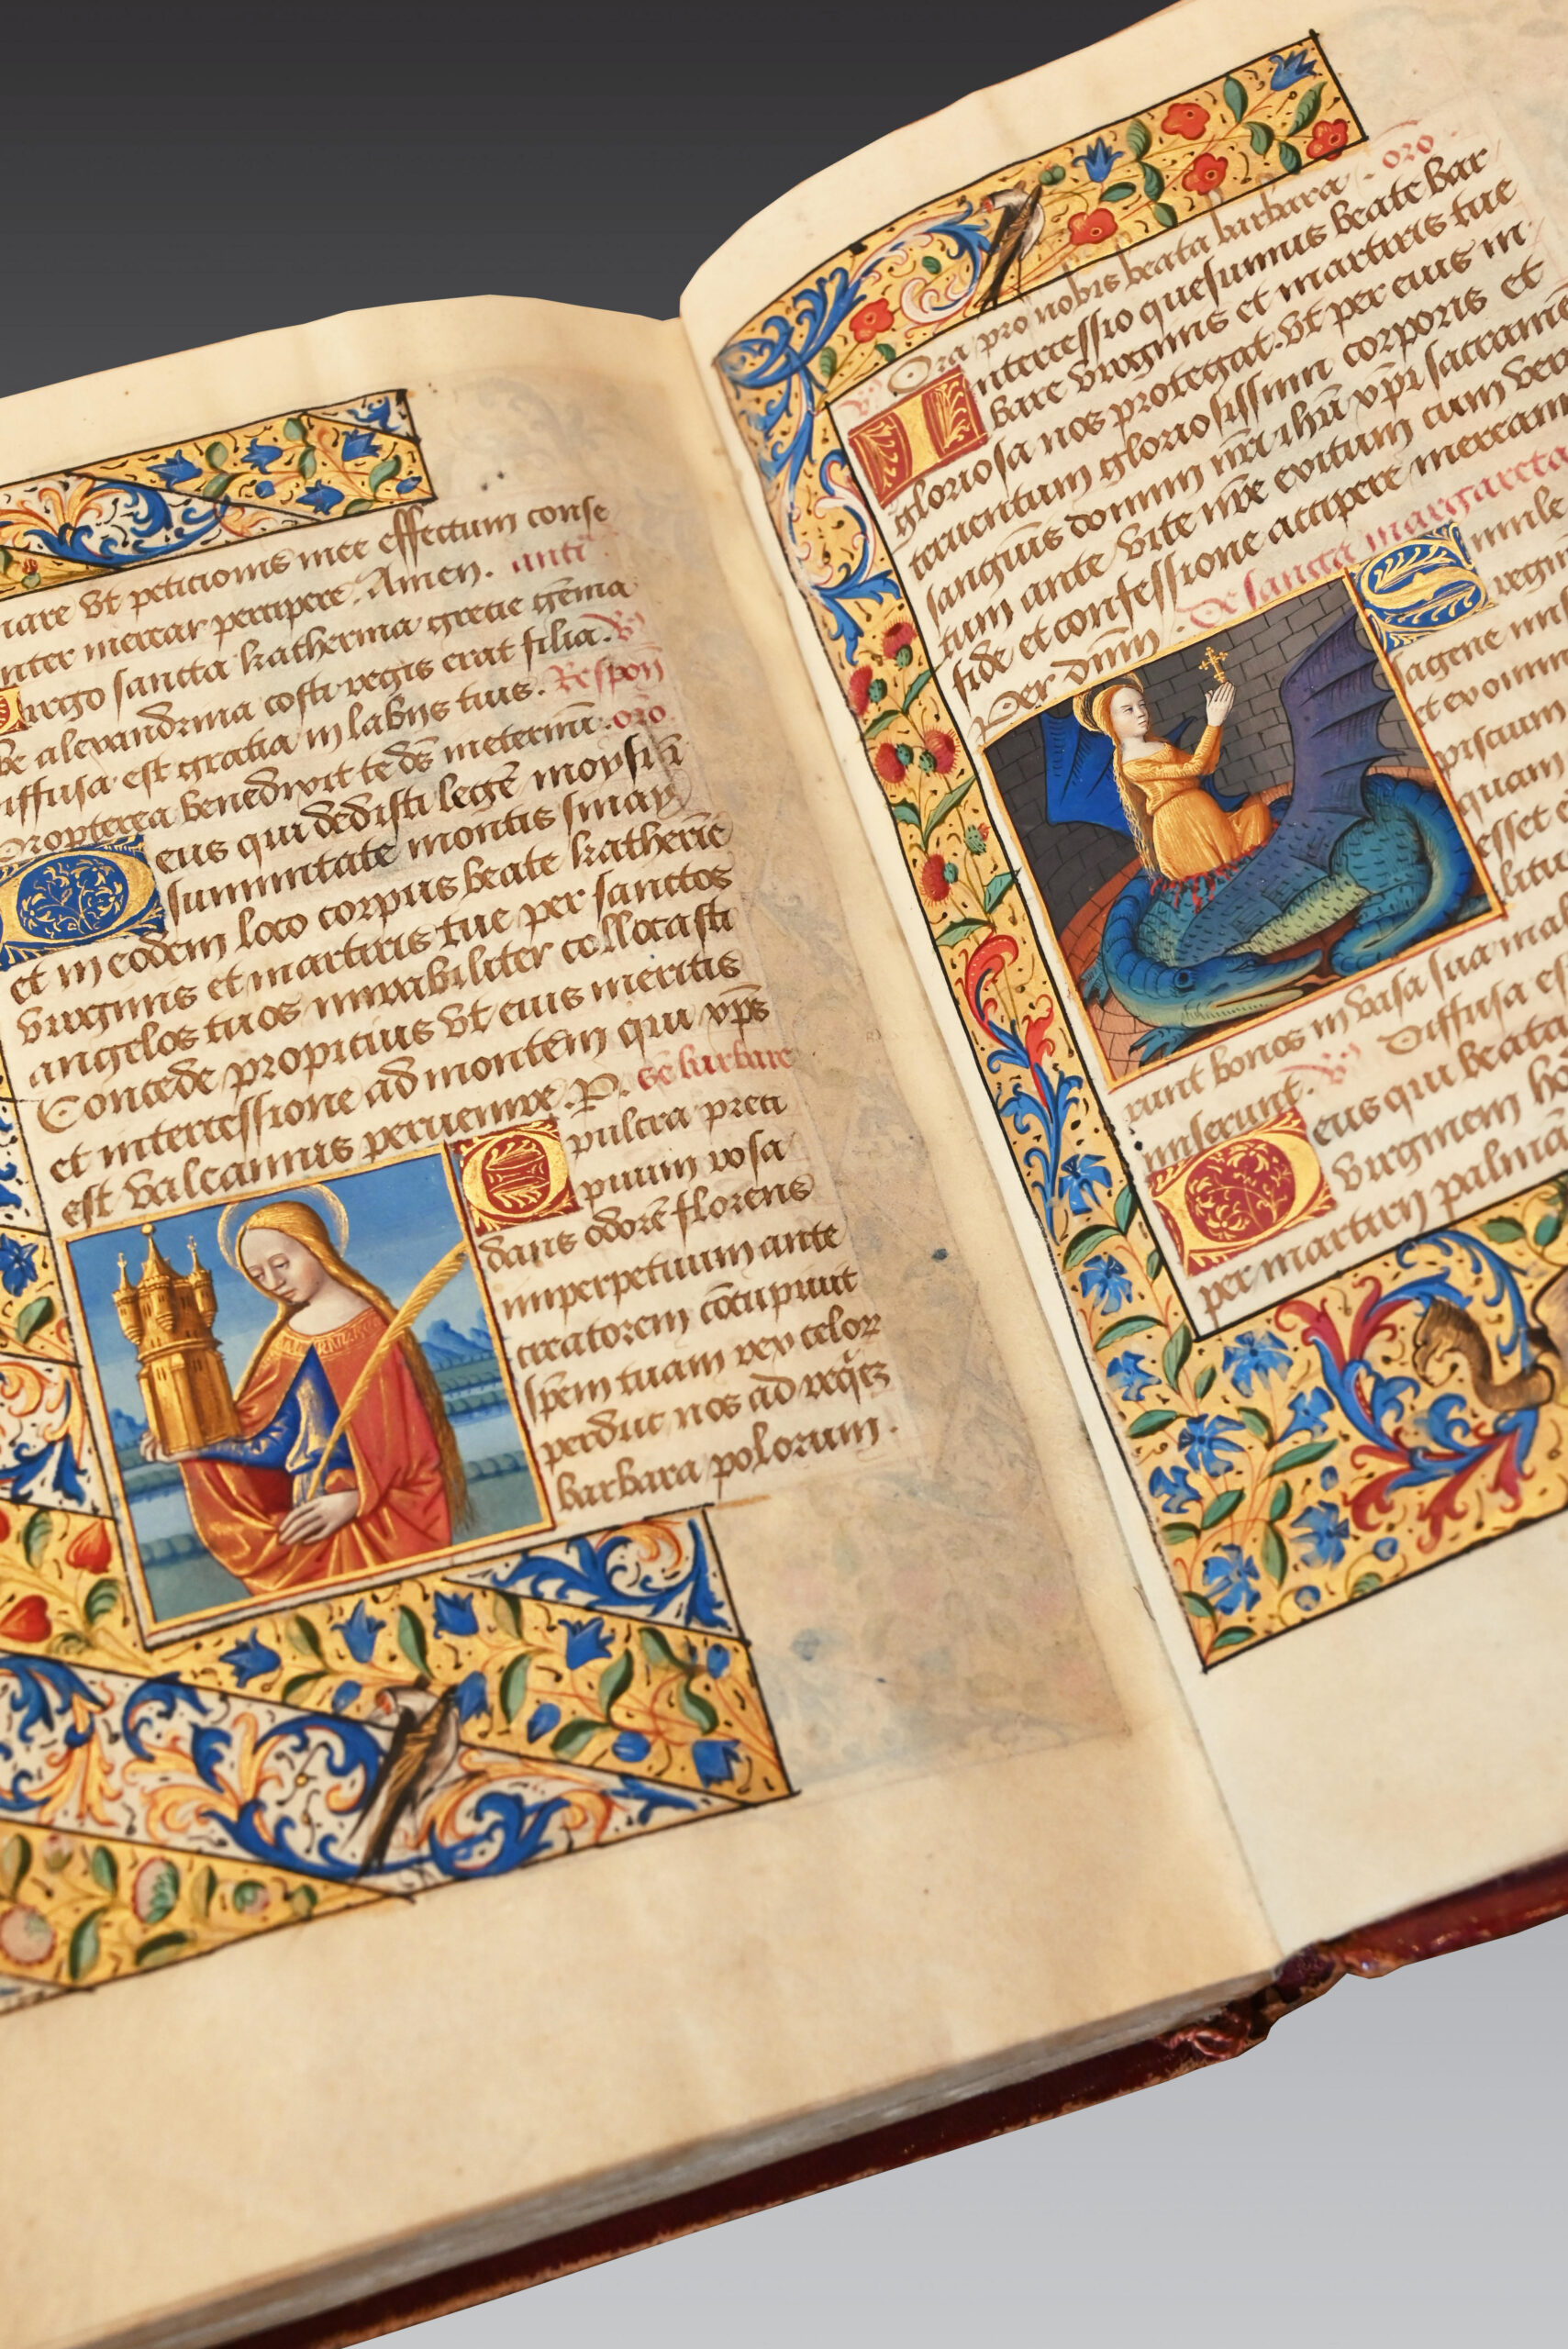 nare vt peticionis mee effectum conse
nter merear percipere. Amen. anti
irgo sancta katherina grecie gēma
be alexandrina costi regis erat filia. V
iffusa est gratia in labijs tuis. Respoñ
Propterea benedixit te ds̄ meternū. oro
Deus qui dedisti legē moysi ī
summitate montis sinay
et in eodem loco corpus beate katherīe
virginis et martiris tue per sanctos
angelos tuos mirabiliter collocasti
Concede propicius vt eius meritis
et intercessione ad montem qui xp̄s
est valeamus peruenire. P. sc̄e barbare
O pulcra preci
puum rosa
dans odorē florens
inperpetuum ante
creatorem cōcupiuit
spem tuam rex celor
perduc nos ad req̄ez
barbara polorum.
V Ora pro nobis beata barbara. oro
Intercessio quesumus beate bar
bare virginis et martiris tue
gloriosa nos protegat. vt per eius in
teruentum gloriosissimi corporis et
sanguis domini nr̄i ihū xp̄i sacramē
tum ante vite nr̄e exitum cum ver
fide et confessione accipere mercam
Per dnm̄. De sancta margareta
Simile
regn
sagene mi
et ex omni
piscium
quam
esset e
litu
runt bonos in vasa sua ma
miserunt. V Diffusa es
Deus qui beata
virginem ho
per martirij palmā